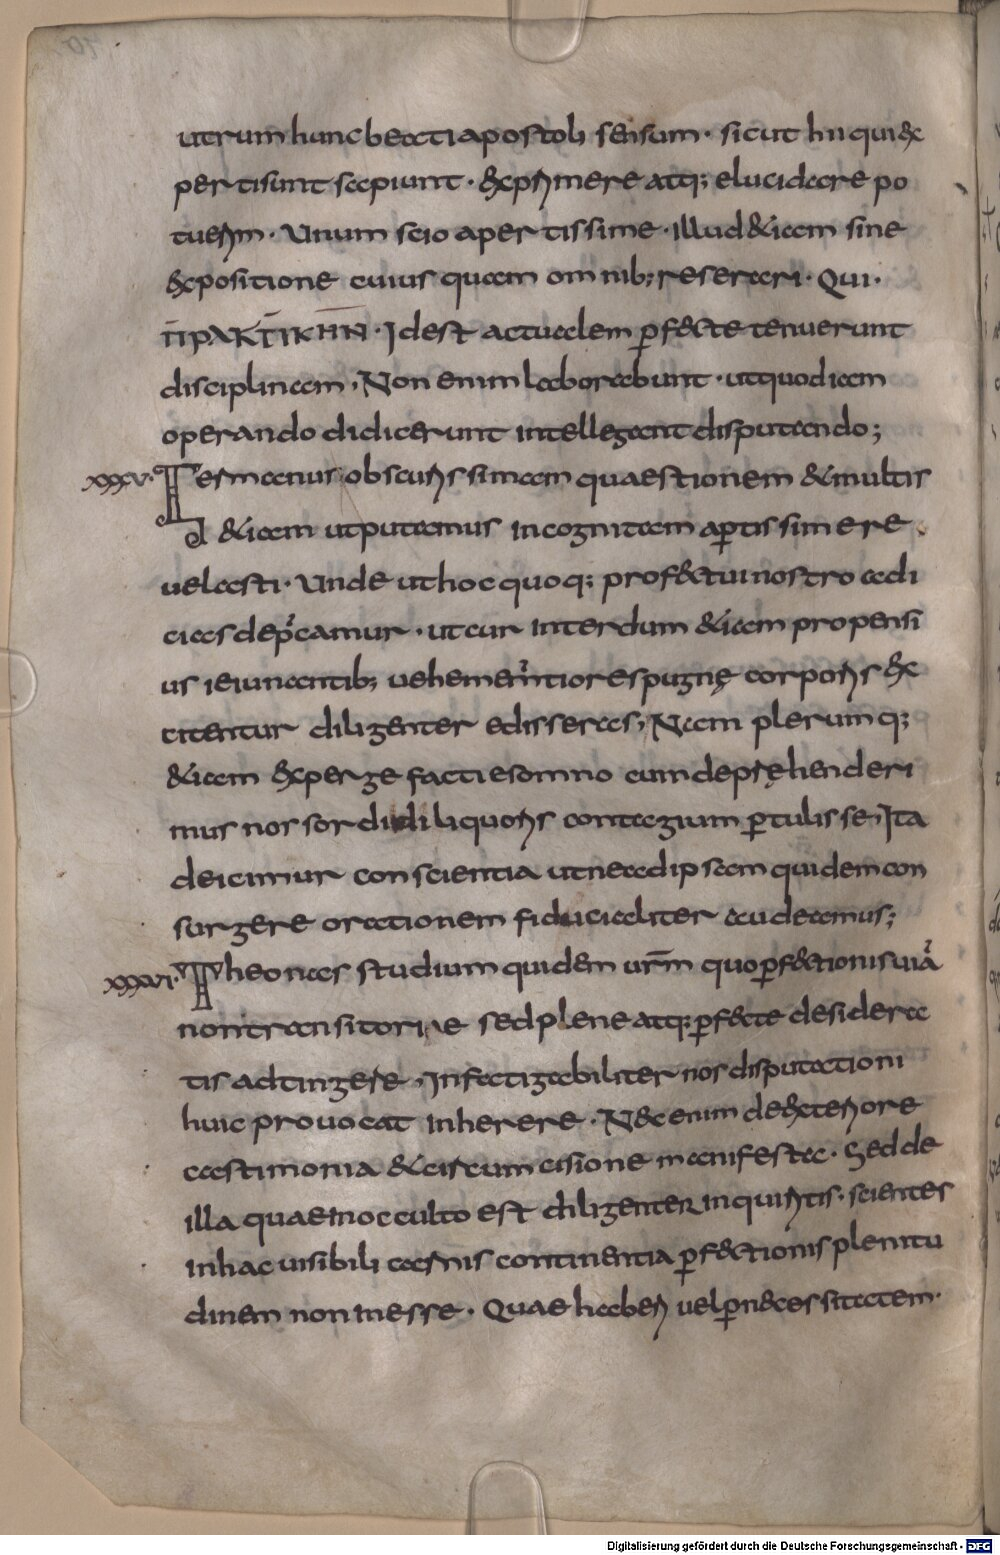 utrum hunc beati apostoli sensum · sicut hii qui ex
pertisunt sapiunt · exprimere atq; elucidare po
tuerim · Unum scio apertissime · illud &iam sine
expositione cuius quam omnib; reserari · Qui ·
ΠΡΑΚΤΙΚΗΝ · Idest actualem pf&cte tenuerunt
disciplinam · Non enim laborabunt · utquodiam
operando didicerunt intellegant disputando;
XXXV · Germanus obscurissimam quaestionem &multis
&iam utputamus incognitam aptissime re
uelasti · Unde ut hoc quoq; prof&ctui nostro adi
cias depcamur · ut cur interdum &iam propensi
us ieiunantib; uehementiores pugnę corporis ex
citentur diligenter edisseras; Nam plerumq;
&iam expergefacti e somno cum deprehenderi
mus nos sordidi liquoris contagium ptulisse · Ita
deicimur conscientia utne ad ipsam quidem con
surgere orationem fiducialiter audeamus;
XXXVI · Theonas studium quidem urm quo pf&ctionis uiā
non transitorie sed plene atq; pf&cte desidera
tis adtingere · Infatigabiliter nos disputationi
huic prouocat inherere · Nec enim de exteriore
castimonia & circumcisione manifesta · Sed de
illa quae in occulto est diligenter inquiritis · scientes
in hac uisibili carnis continentia pf&ctionis plenitu
dinem non inesse · Quae haberi uel p necessitatem ·
Digitalisierung gefördert durch die Deutsche Forschungsgemeinschaft - DFG